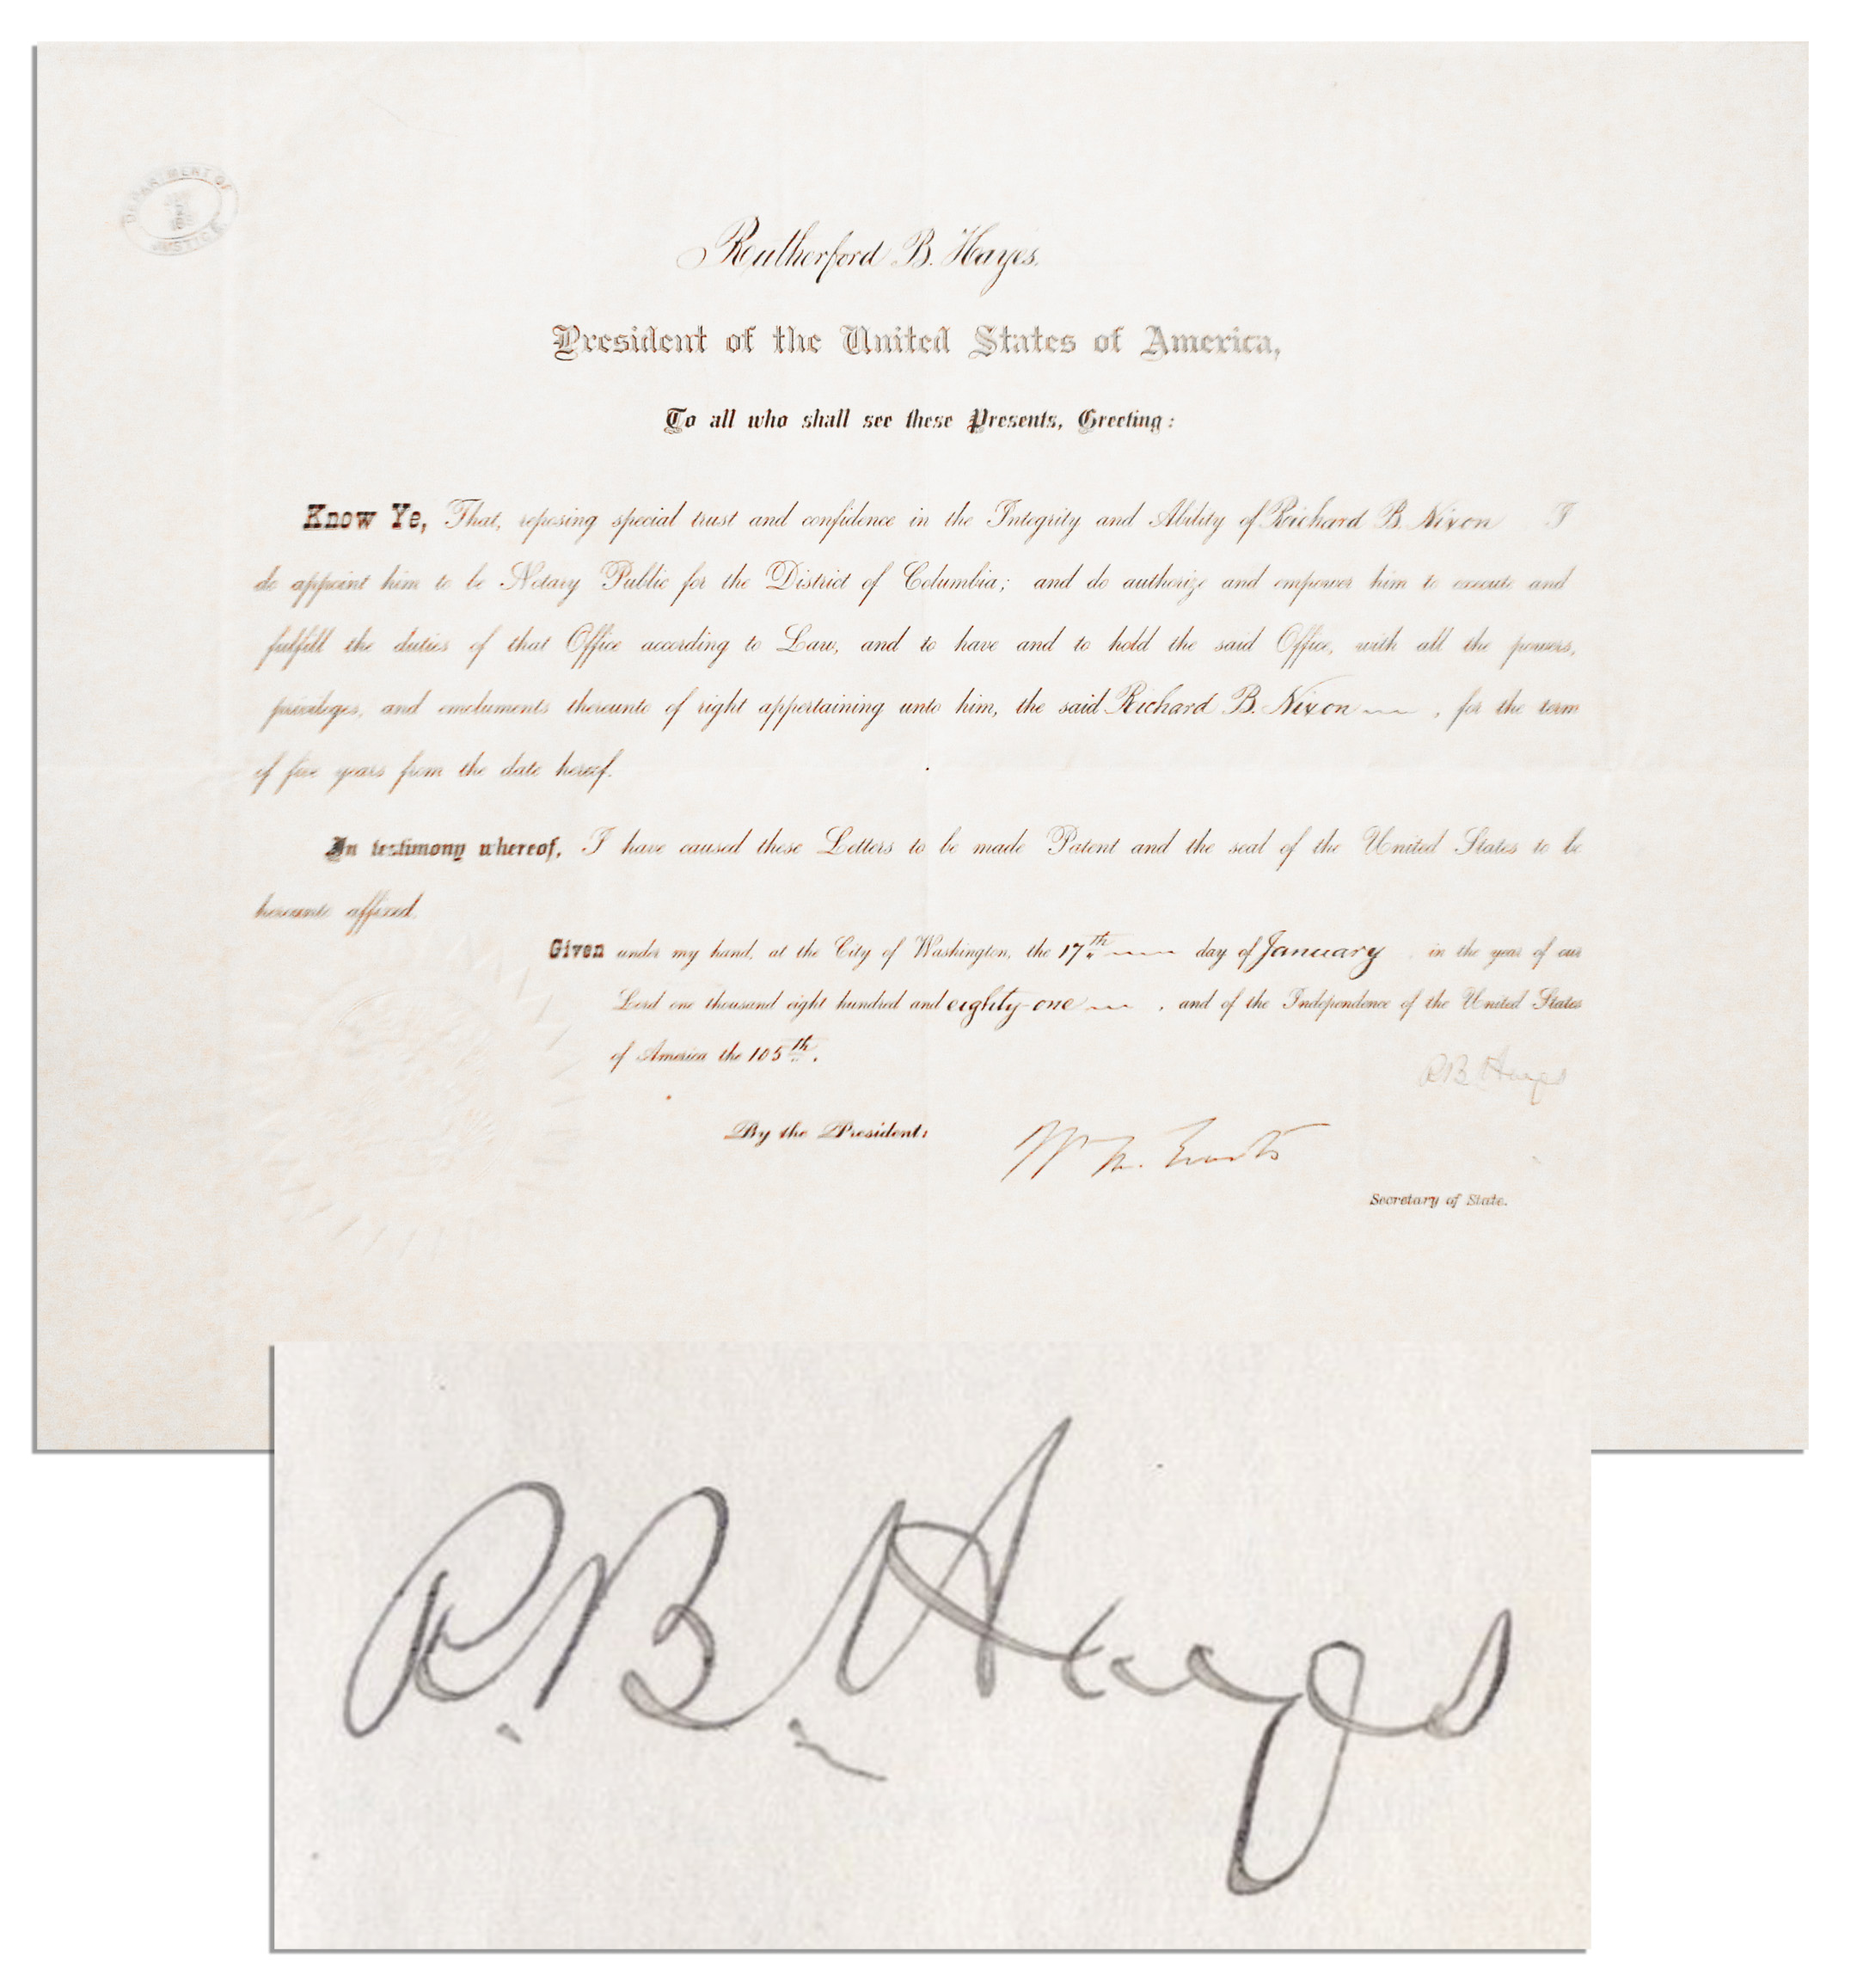 DEPARTMENT OF
JUSTICE
Rutherford B. Hayes.
President of the United States of America,
To all who shall see these Presents, Greeting:
Know Ye, That, reposing special trust and confidence in the Integrity and Ability of Richard B. Nixon I
do appoint him to be Notary Public for the District of Columbia; and do authorize and empower him to execute and
fulfill the duties of that Office according to Law, and to have and to hold the said Office, with all the powers,
privileges, and emoluments thereunto of right appertaining unto him, the said Richard B. Nixon , for the term
of five years from the date hereof.
In testimony whereof, I have caused these Letters to be made Patent and the seal of the United States to be
hereunto affixed.
Given under my hand, at the City of Washington, the 17th day of January , in the year of our
Lord one thousand eight hundred and eighty-one , and of the Independence of the United States
of America the 105th.
R. B. Hayes
By the President:
Wm. M. Evarts
Secretary of State.
R. B. Hayes